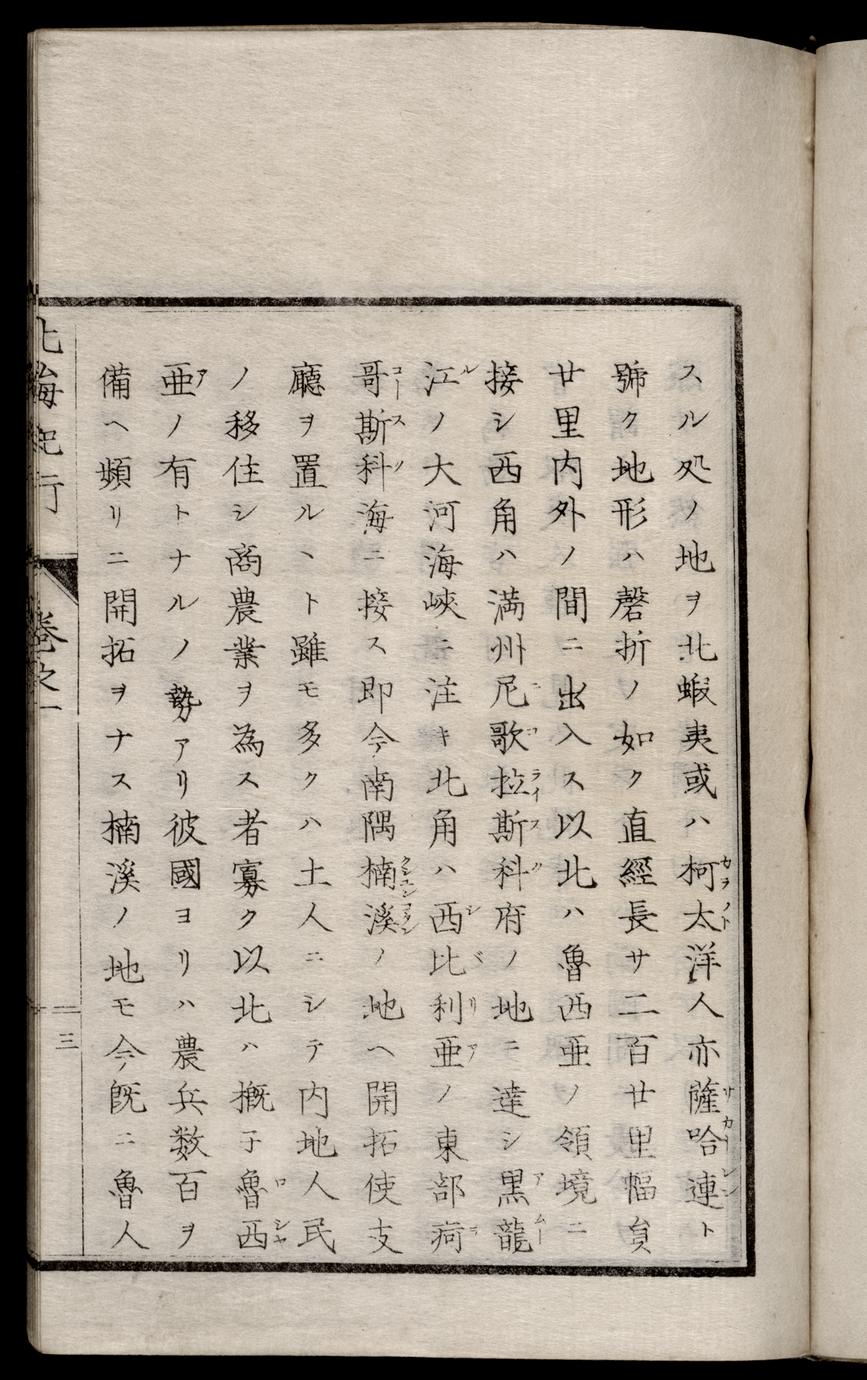 スル処ノ地ヲ北蝦夷或ハ柯太洋人亦薩哈連ト
號ク地形ハ磬折ノ如ク直經長サ二百廿里幅員
廿里内外ノ間ニ出入ス以北ハ魯西亜ノ領境ニ
接シ西角ハ満州尼歌拉斯科府ノ地ニ達シ黒龍
江ノ大河海峽ニ注キ北角ハ西比利亜ノ東部疴
哥斯科海ニ接ス即今南隅楠溪ノ地ヘ開拓使支
廳ヲ置ルヽト雖モ多クハ土人ニシテ内地人民
ノ移住シ商農業ヲ為ス者寡ク以北ハ概子魯西
亜ノ有トナルノ勢アリ彼國ヨリハ農兵数百ヲ
備ヘ頻リニ開拓ヲナス楠溪ノ地モ今既ニ魯人
北海紀行
巻之一
三